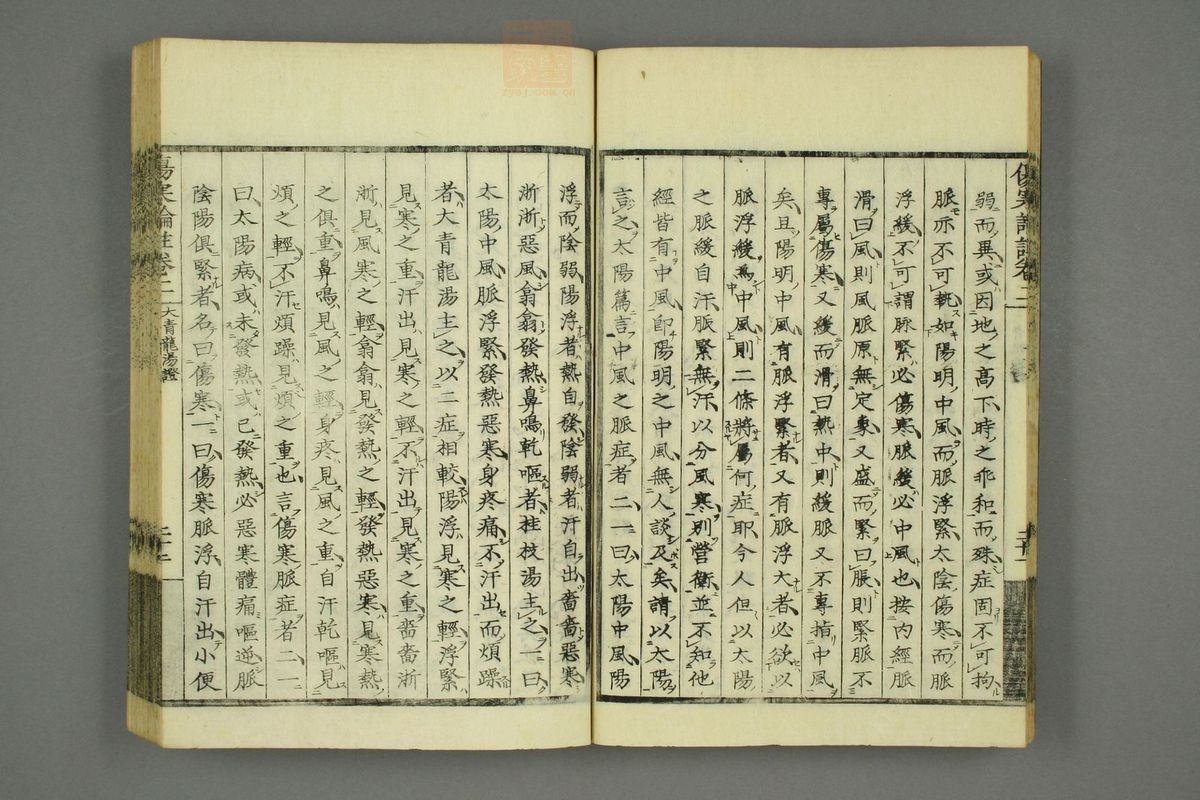 弱而異或因地之高下時之乖和而殊症固不可拘
脈亦不可執如陽明中風而脈浮緊太陰傷寒而脈
浮緩不可謂脉緊必傷寒脈緩必中風也按內經脈
滑曰風則風脈原無定象又盛而緊曰脹則緊脈不
專屬傷寒又緩而滑曰熱中則緩脈又不專指中風
矣且陽明中風有脈浮緊者又有脈浮大者必欲以
脈浮緩為中風則二條將屬何症耶今人但以太陽
之脈緩自汗脈緊無汗以分風寒別營衛並不知他
經皆有中風即陽明之中風無人談及矣請以太陽
言之太陽篇言中風之脈症者二一曰太陽中風陽
浮而陰弱陽浮者熱自發陰弱者汗自出嗇嗇惡寒
淅淅惡風翕翕發熱鼻鳴乾嘔者桂枝湯主之一曰
太陽中風脈浮緊發熱惡寒身疼痛不汗出而煩躁
者大青龍湯主之以二症相較陽浮見寒之輕浮緊
見寒之重汗出見寒之輕不汗出見寒之重嗇嗇淅
淅見風寒之輕翕翕見發熱之輕發熱惡寒見寒熱
之俱重鼻鳴見風之輕身疼見風之重自汗乾嘔見
煩之輕不汗煩躁見煩之重也言傷寒脈症者二一
曰太陽病或未發熱或已發熱必惡寒體痛嘔逆脈
陰陽俱緊者名曰傷寒一曰傷寒脈浮自汗出小便
傷寒論註卷二
大青龍湯證